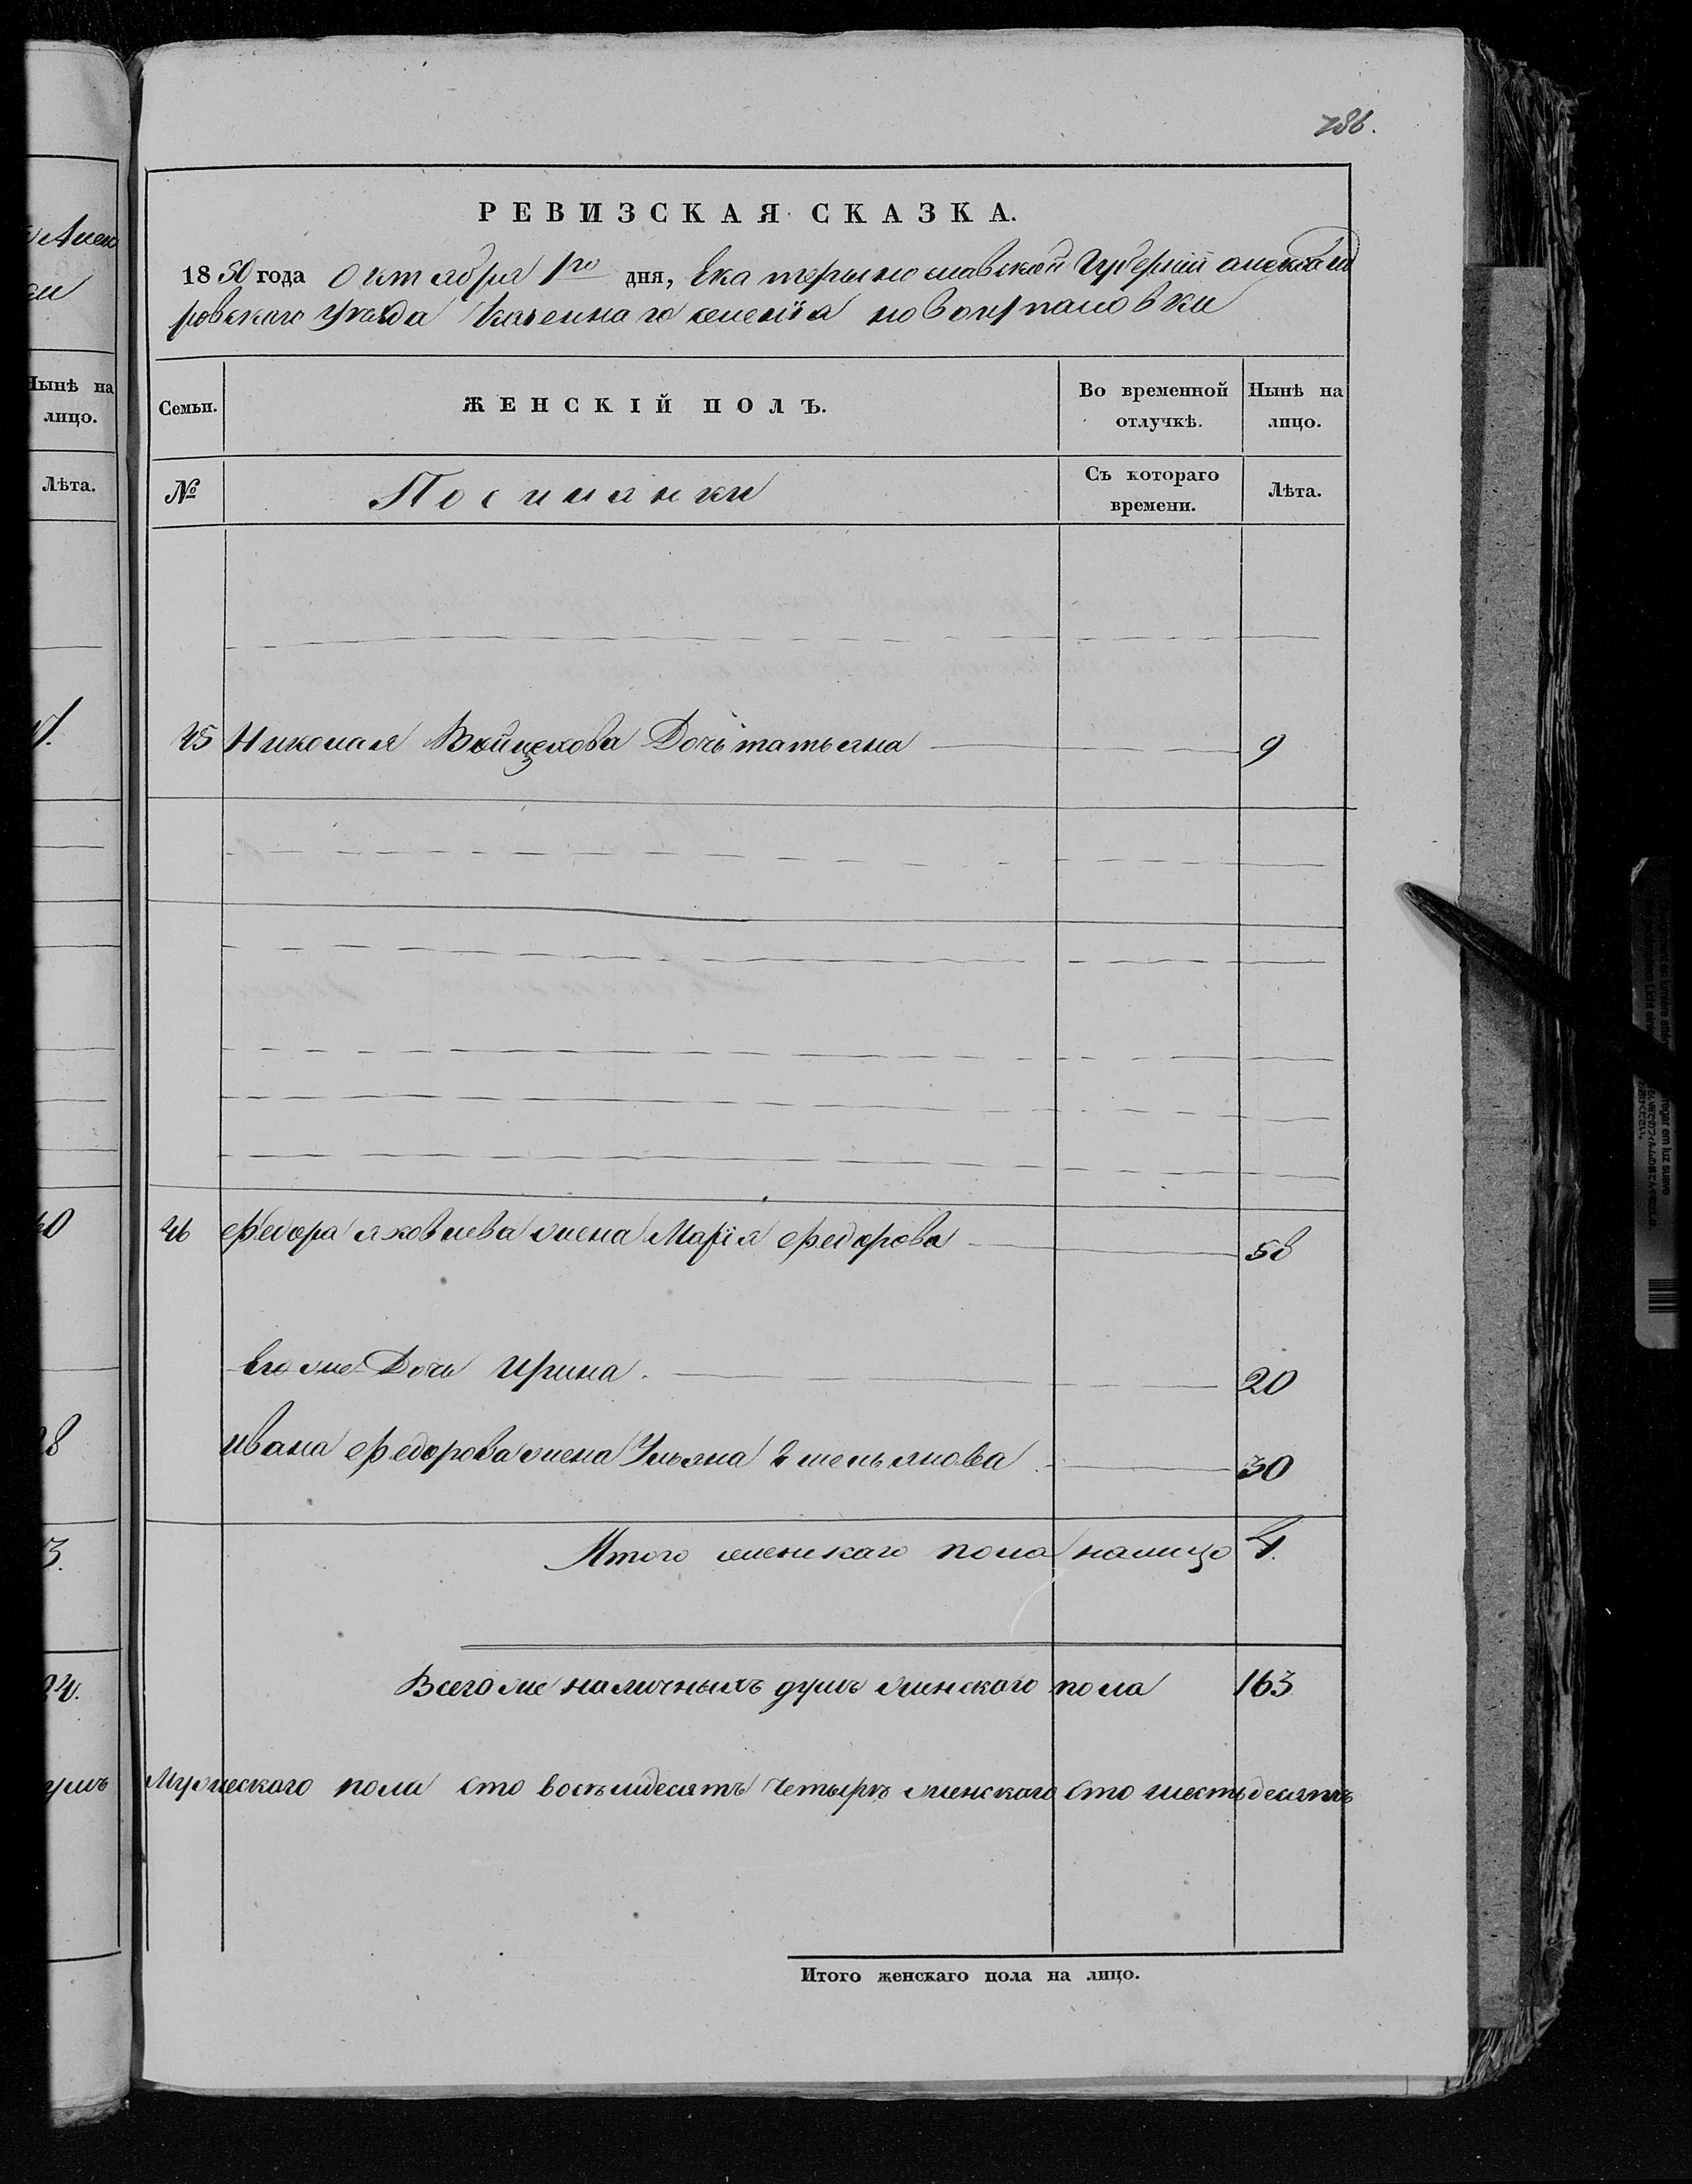 786.
РЕВИЗСКАЯ СКАЗКА.
1850 года Октября 1го дня, Екатеринославской Губернии александ
ровского уезда Казенного селенія
Семьи.
ЖЕНСКІЙ ПОЛЪ.
Во временной отлучкѣ.
Нынѣ на лицо.
№
Поселянки
Съ котораго времени.
Лѣта.
45 Николая Войцехова Дочь татьяна 9
46 Федора яковлева жена Марія Федорова 58
Его же Дочь Ирина. 20
ивана Федорова жена Ульяна Емельянова 30
Итого женскаго пола налицо 4.
Всего же наличныхъ душъ женскаго пола 163
Мужескаго пола сто восемдесятъ четыре женскаго сто шестьдесятъ
Итого женскаго пола на лицо.
Нынѣ на
лицо.
Лѣта.